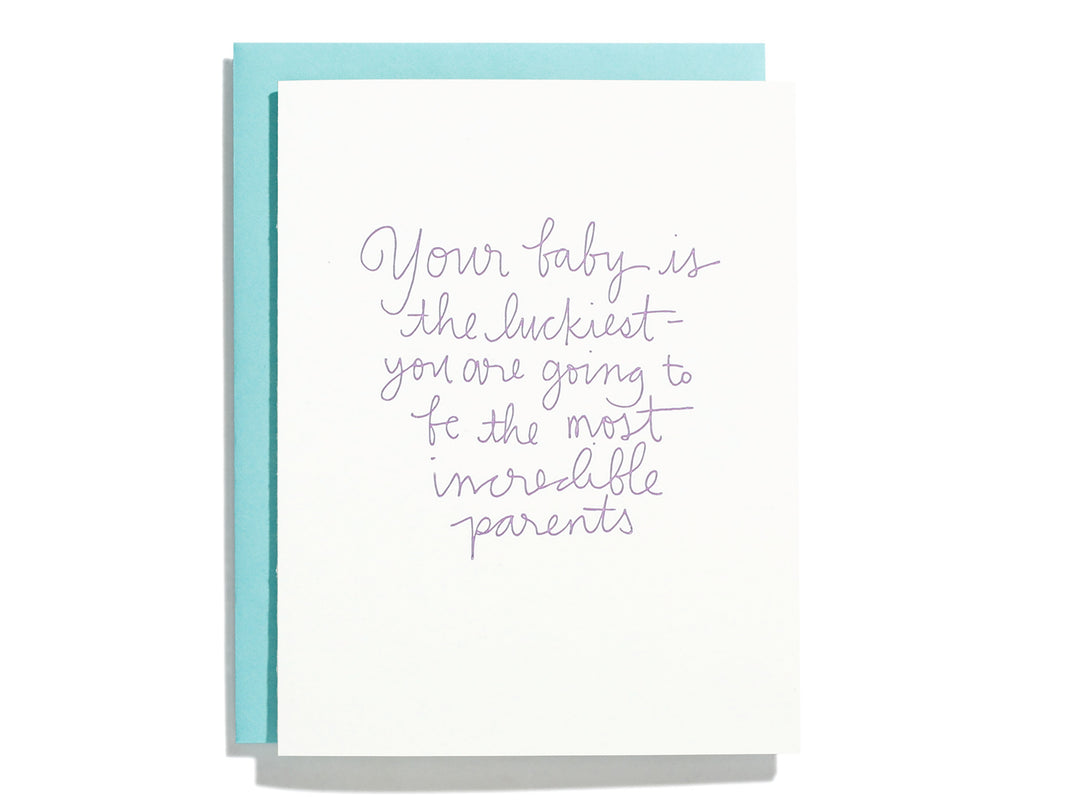 Your baby is
the luckiest-
you are going to
be the most
incredible
parents